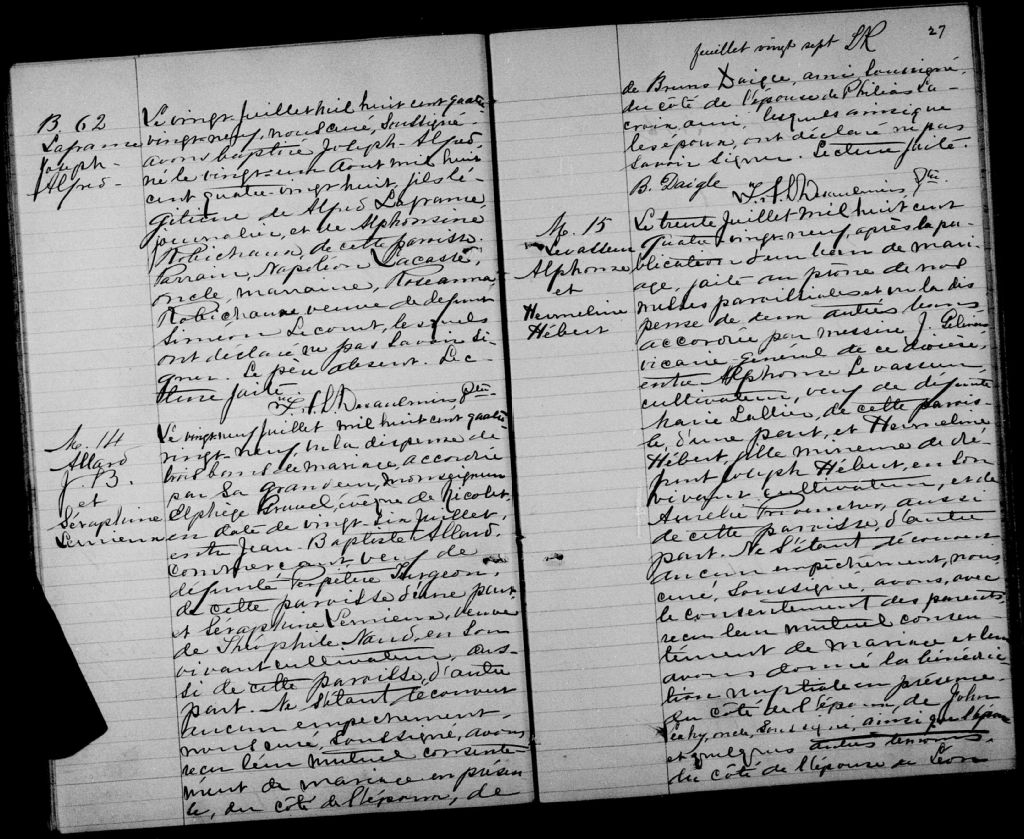 B 62
Lafrance
Joseph-
Alfred-
Le vingt Juillet mil huit cent quatre
vingt-neuf, nous curé, soussigné
avons baptisé Joseph-Alfred,
né le vingt-un Août mil huit
cent quatre-vingt huit, fils lé-
gitime de Alfred Lafrance,
journalier, et de Alphonsine
Robichaux, de cette paroisse.
Parrain, Napoléon Lacasse,
oncle, marraine, Roseanna
Robichaux veuve de défunt
Siméon Lecomt, lesquels
ont déclaré ne pas savoir si-
gner. Le père absent. Lec-
ture faite.
Désaulniers Ptre
M. 14
Allard
J B.
et
Séraphine
Lemieux
Le vingt-neuf Juillet mil huit cent quatre
vingt-neuf, vu la dispense de
trois bans de mariage, accordée
par Sa Grandeur, Monseigneur
Elphège Gravel, évêque de Nicolet,
en date de vingt-six Juillet,
entre Jean-Baptiste Allard,
commerçant, veuf de
défunte Turgeon,
de cette paroisse, d'une part
et Séraphine Lemieux, veuve
de Théophile Naud, en son
vivant cultivateur, aus-
si de cette paroisse, d'autre
part. Ne s'étant découvert
aucun empêchement,
nous curé, soussigné, avons
reçu leur mutuel consente-
ment de mariage en présen-
ce, du côté de l'époux, de
feuillet vingt sept
27
de Bruno Daigle, ami soussigné,
du côté de l'épouse de Philias La-
croix, ami, lesquels ainsi que
les époux, ont déclaré ne pas
savoir signer. Lecture faite.
B. Daigle
Désaulniers Ptre
M. 15
Levasseur
Alphonse
et
Hermeline
Hébert
Le trente Juillet mil huit cent
quatre-vingt-neuf, après la pu-
blication d'un ban de mari-
age, faite au prône de nos
messes paroissiales et vu la dis-
pense de deux autres bans
accordée par messire J.
vicaire-général de ce diocèse,
entre Alphonse Levasseur,
cultivateur, veuf de défunte
Marie Lallier, de cette parois-
se, d'une part, et Hermeline
Hébert, fille mineure de dé-
funt Joseph Hébert, en son
vivant cultivateur, et de
Aurélie Boucher, aussi
de cette paroisse, d'autre
part. Ne s'étant découvert
aucun empêchement, nous
curé, soussigné, avons, avec
le consentement des parents,
reçu leur mutuel consen-
tement de mariage et leur
avons donné la bénédic-
tion nuptiale en présence
du côté de l'époux, de John
Leahy, oncle, soussigné, ainsi que l'époux
et quelques autres témoins.
du côté de l'épouse de Léon